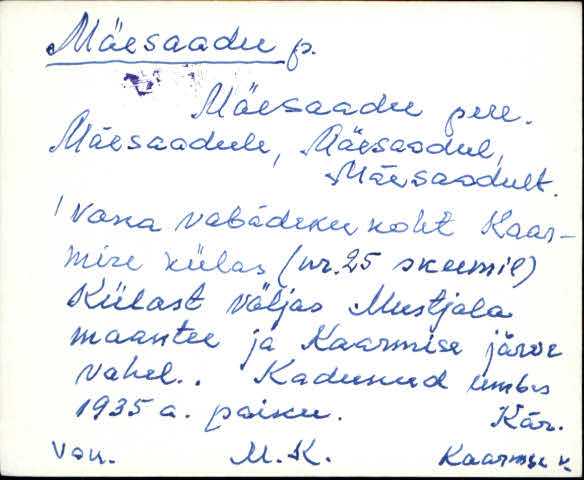 Mäesaadu p.
Mäesaadu pere.
Mäesaadule, Mäesaadul,
Mäesaadult.
Vana vabadiku koht Kaar-
mise külas (nr. 25 skeemil)
Külast väljas Mustjala
maantee ja Kaarmise järve
vahel.. Kadunud umbes
1935 a. paiku. Kär.
M. K. Kaarmise k.